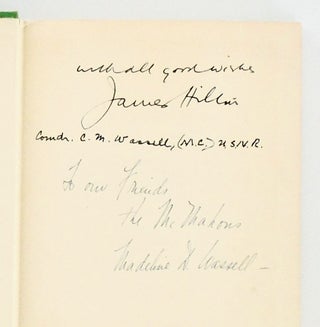 with all good wishes
James Hilton
Comdr. C. M. Wassell, (M.C.) U.S.N.R.
To our Friends
the McMahons
Madeline D. Wassell –